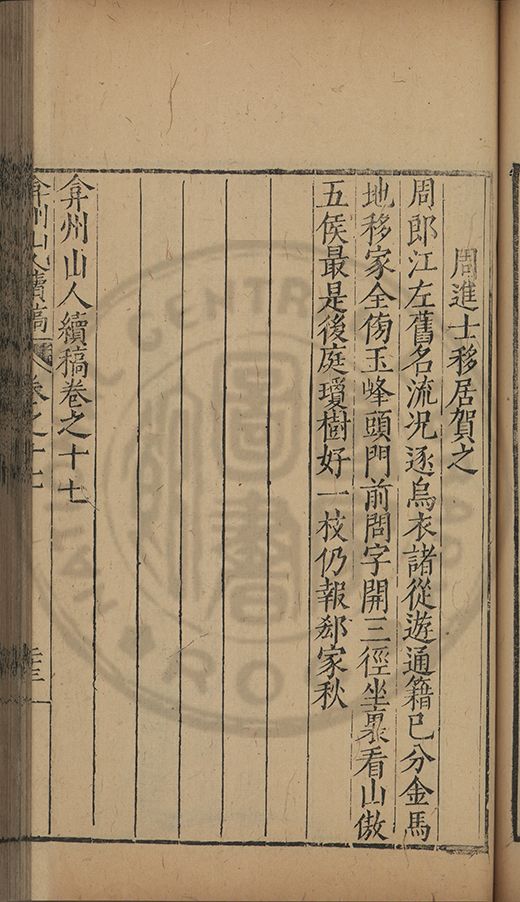 周進士移居賀之
周郎江左舊名流况逐烏衣諸從遊通籍巳分金馬
地移家全傍玉峰頭門前問字開三徑坐裏看山傲
五侯最是後庭瓊樹好一枝仍報郄家秋
弇州山人續稿卷之十七
弇州山人續稿 卷之十七